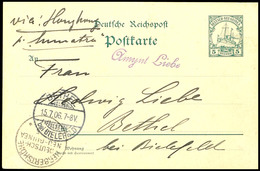 via: Hongkong
p. Sumatra
Deutsche Reichspost
Postkarte
An
Amynt Liebe
5 5
Frau
Hedwig Liebe
15.7.06. 7-8V.
Bethel
bei Bielefeld
HERBERTSHÖHE
DEUTSCH-
NEU-GUINEA